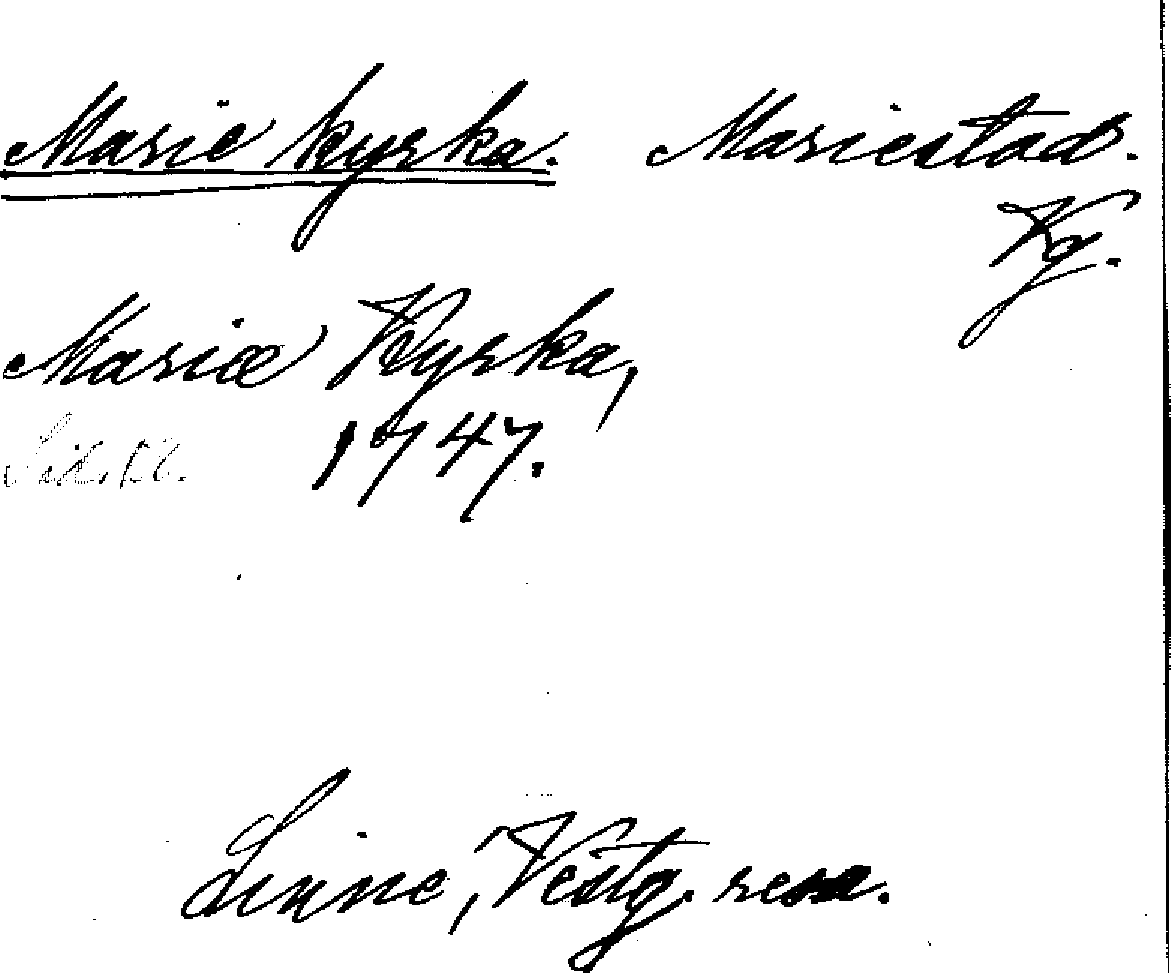 Marie kyrka. Mariestad.
Kg.
Mariæ Kyrka,
1747.
Linne, Vestg. resa.